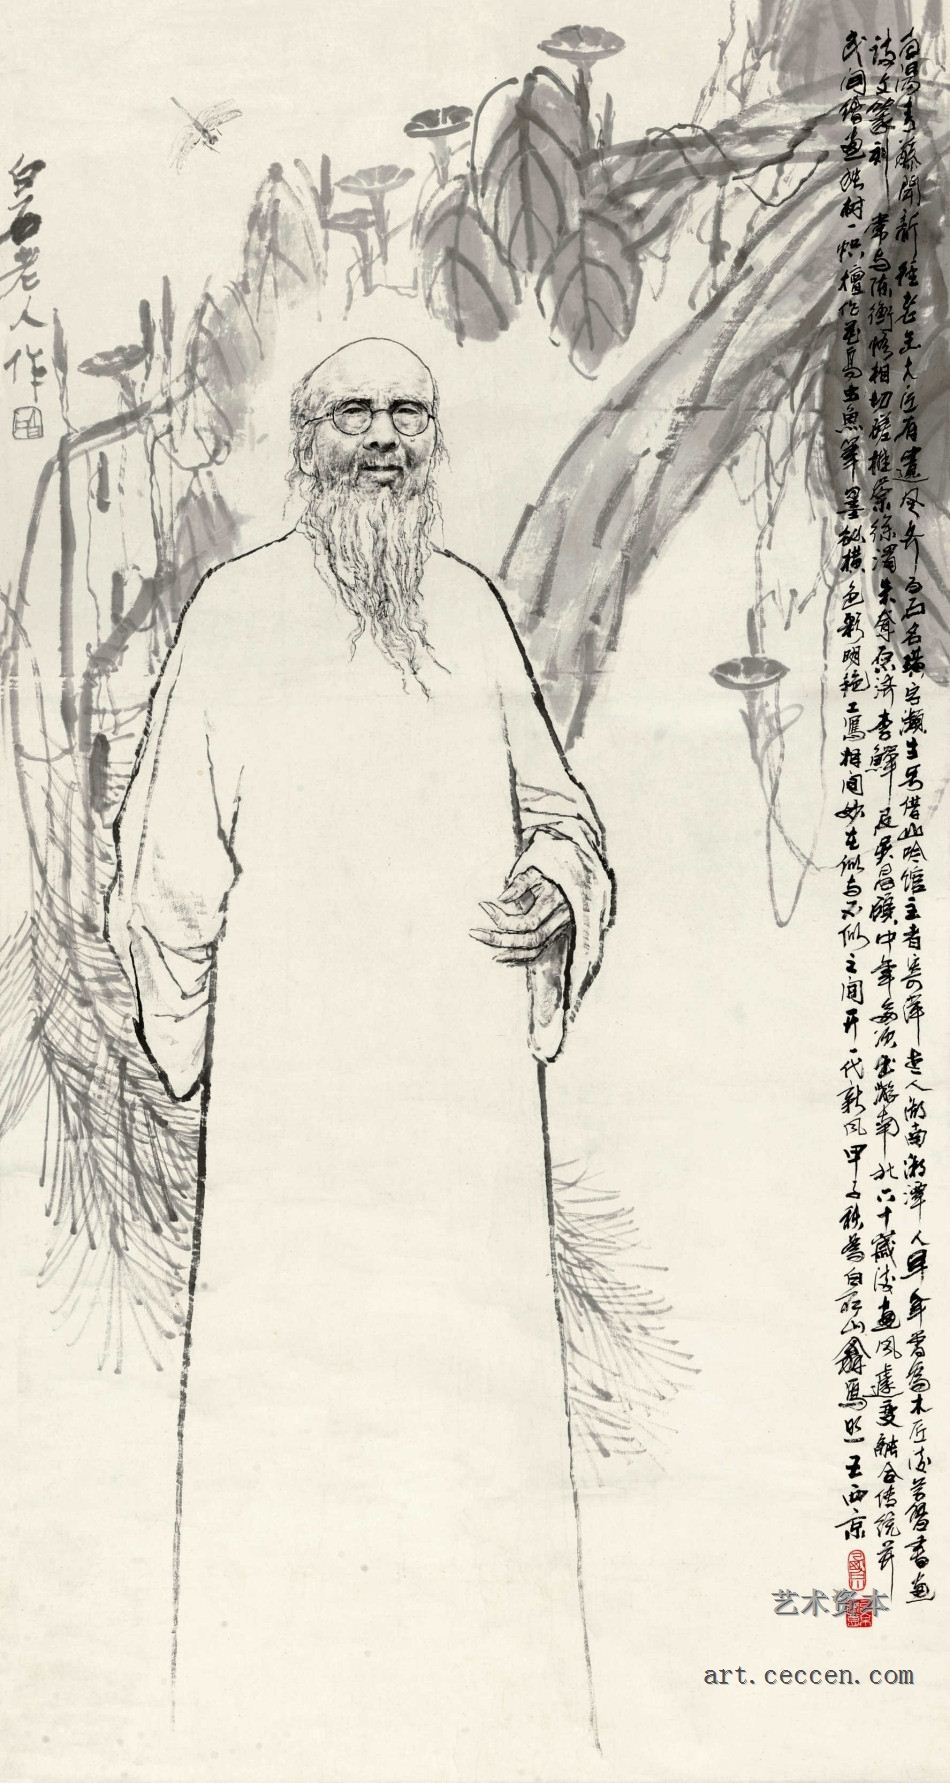 白石老人作
白阳青藤开新径老至大匠有遗风齐白石名璜字濒生号借山吟馆主者寄萍老人湖南湘潭人早年曾为木匠后学习书画
诗文篆刻常与陈衡恪相切磋推崇徐渭朱耷原济李鱓及吴昌硕中年多次出游南北六十岁后画风遽变融合传统并
民间绘画独树一帜擅作花鸟虫鱼笔墨纵横色彩明艳工写相间妙在似与不似之间开一代新风甲子秋为白石山翁写照王西京
艺术资本
art.ceccen.com